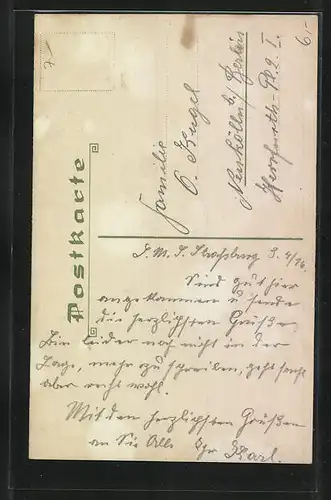 Postkarte
Familie
O. Kugel
Neukölln b/ Berlin
Herrfurth-Pl. 2 I.
6,-
S. M. S. Strassburg 3. 4/16.
Sind gut hier
angekommen u sende
die herzlichsten Grüße.
Bin leider noch nicht in der
Lage, mehr zu schreiben, geht sonst
aber recht wohl.
Mit den herzlichsten Grüßen
an Sie Alle Ihr Karl.